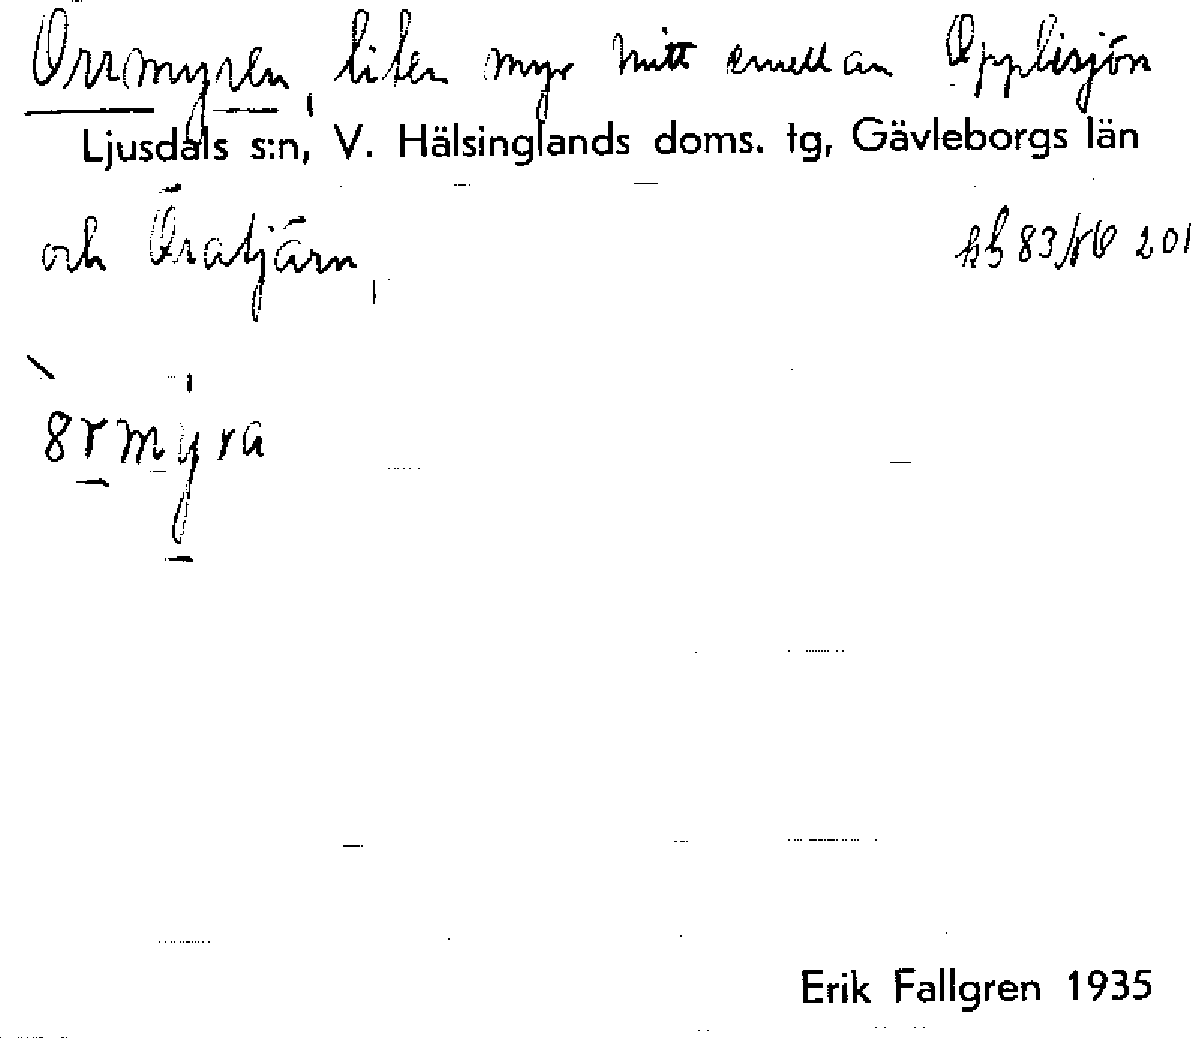 Orrmyren, liten myr mitt emellan Öpplisjön
Ljusdals s:n, V. Hälsinglands doms. tg, Gävleborgs län
och Öratjärn,
83/NO 201
8rmyra
Erik Fallgren 1935